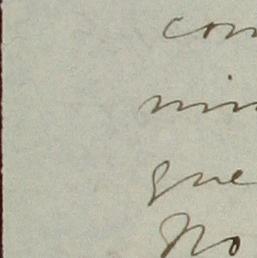 con
min
gue
No